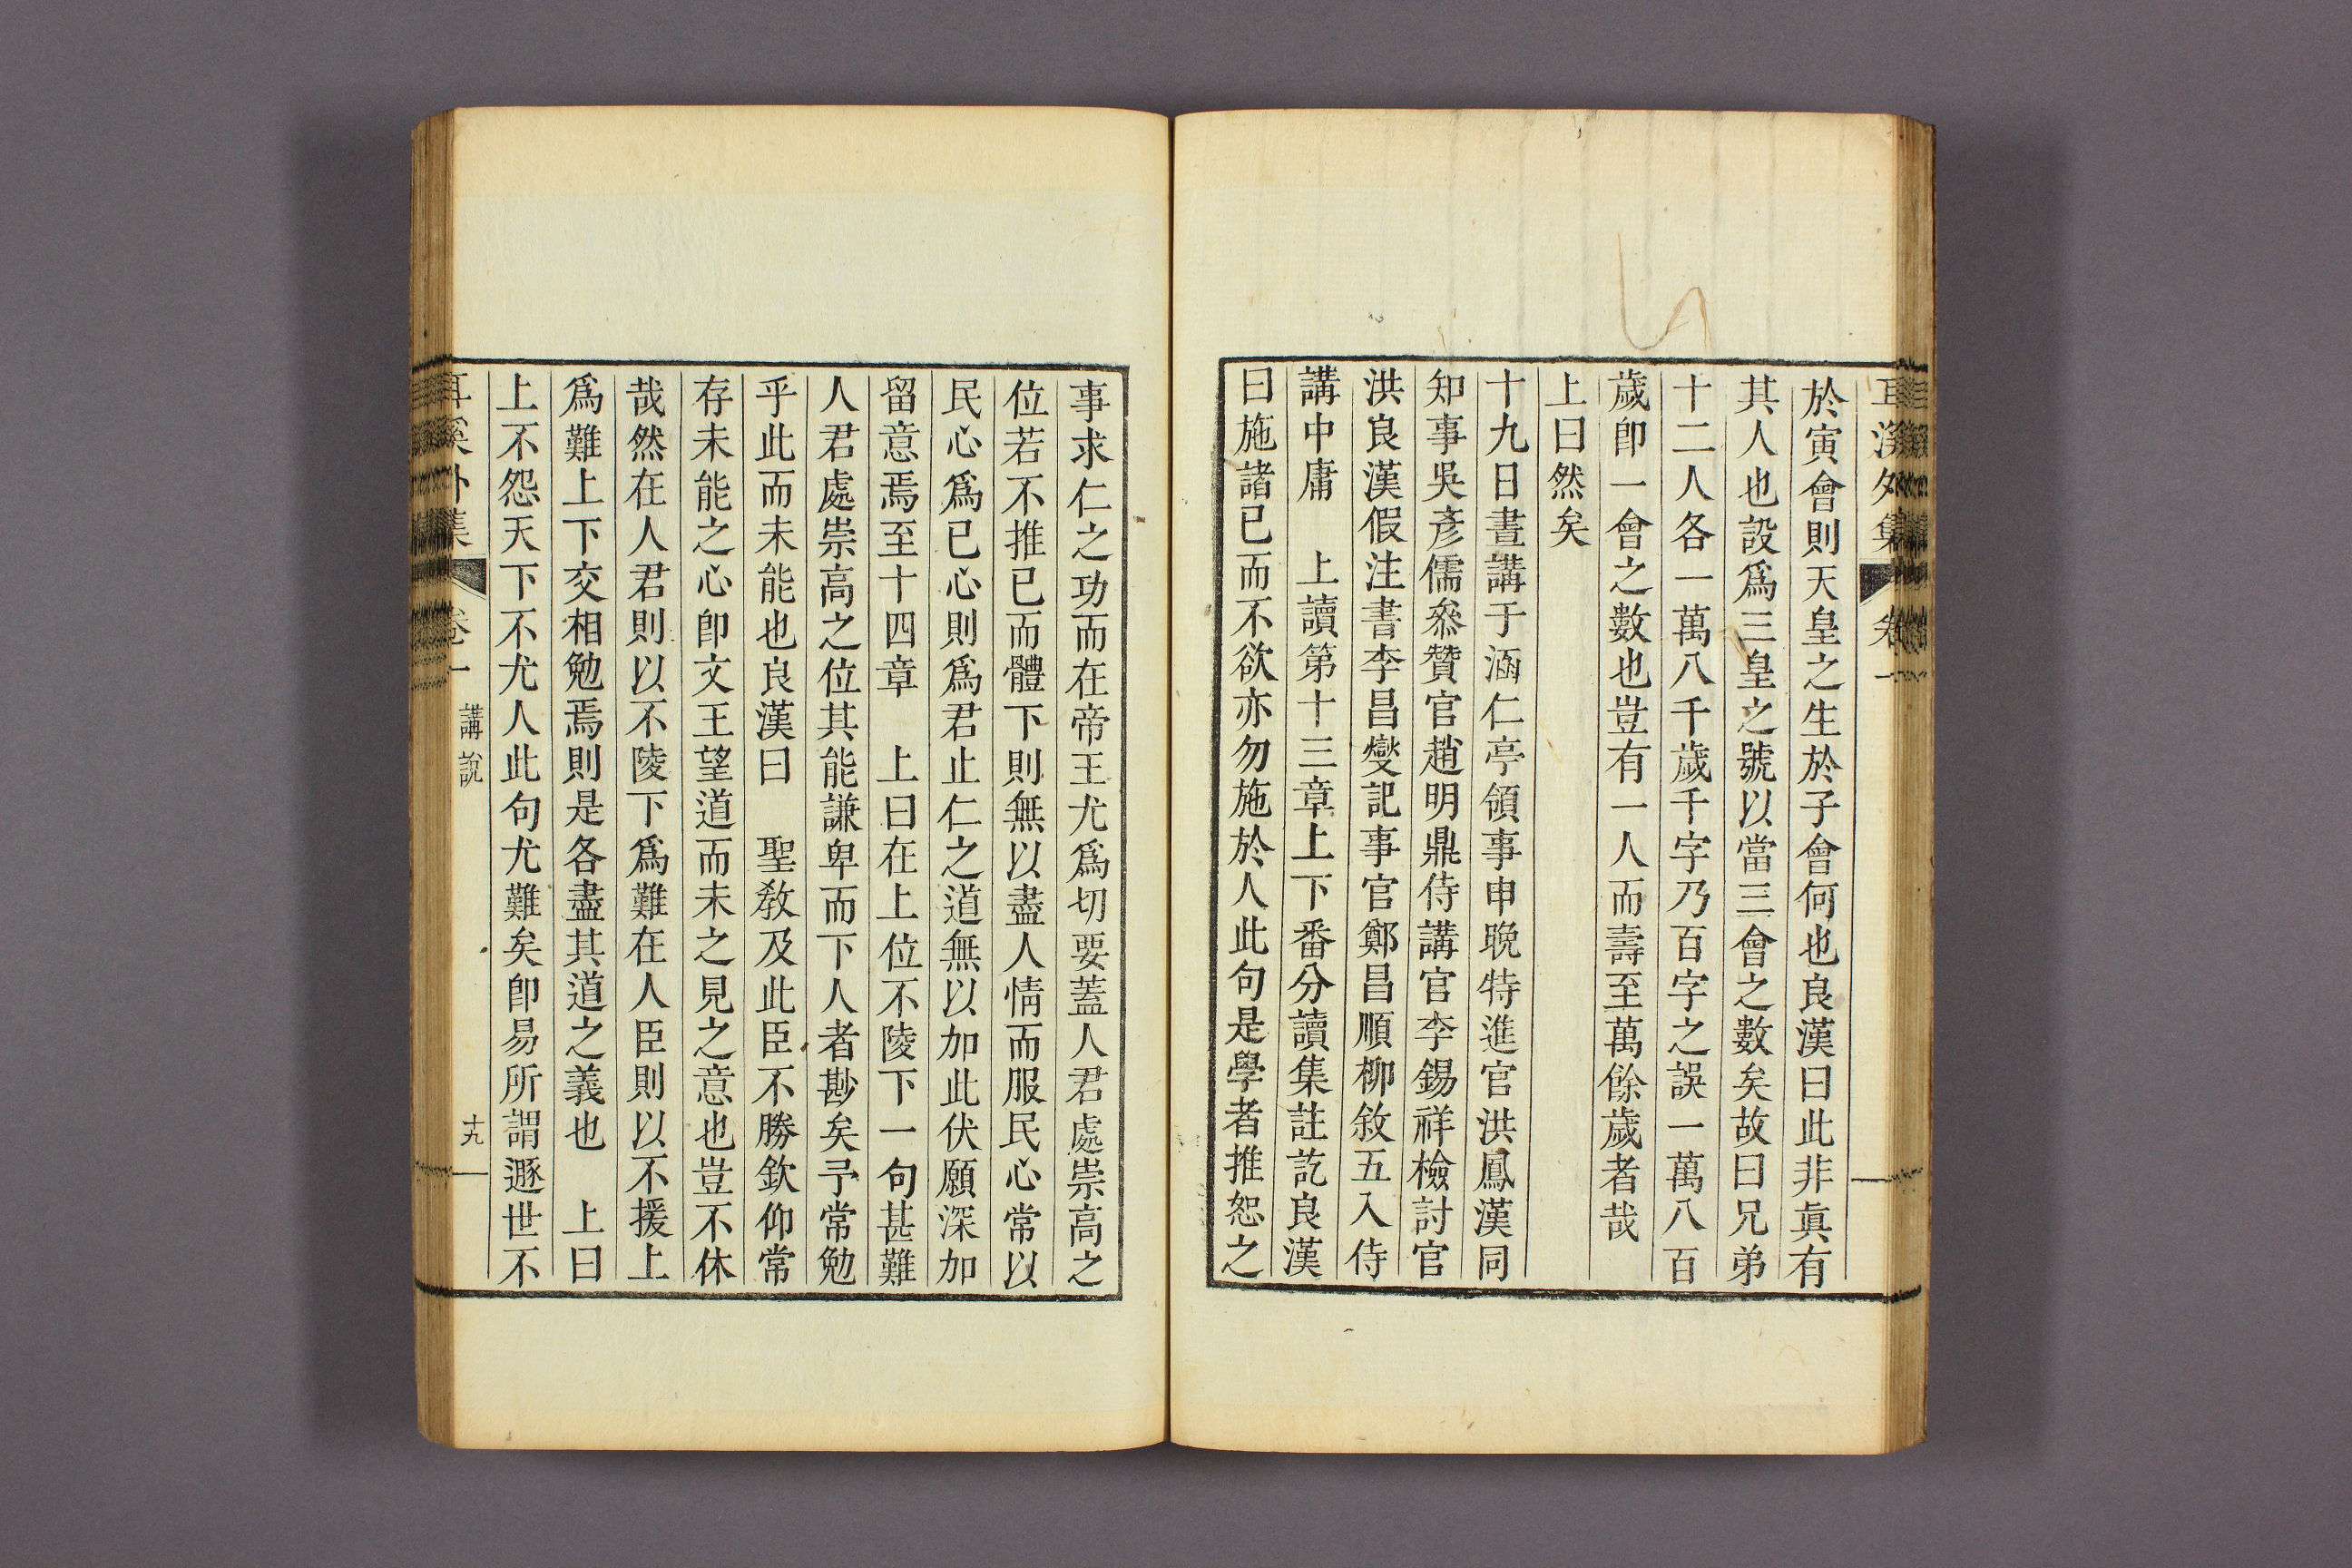 耳溪外集 卷一
於寅會則天皇之生於子會何也良漢曰此非眞有
其人也設爲三皇之號以當三會之數矣故曰兄弟
十二人各一萬八千歲千字乃百字之誤一萬八百
歲卽一會之數也豈有一人而壽至萬餘歲者哉
上曰然矣
十九日晝講于涵仁亭領事申晚特進官洪鳳漢同
知事吳彥儒叅贊官趙明鼎侍講官李錫祥檢討官
洪良漢假注書李昌燮記事官鄭昌順柳敘五入侍
講中庸　上讀第十三章上下番分讀集註訖良漢
曰施諸已而不欲亦勿施於人此句是學者推恕之
事求仁之功而在帝王尤爲切要蓋人君處崇高之
位若不推已而體下則無以盡人情而服民心常以
民心爲已心則爲君止仁之道無以加此伏願深加
留意焉至十四章　上曰在上位不陵下一句甚難
人君處崇高之位其能謙卑而下人者尠矣予常勉
乎此而未能也良漢曰　聖敎及此臣不勝欽仰常
存未能之心卽文王望道而未之見之意也豈不休
哉然在人君則以不陵下爲難在人臣則以不援上
爲難上下交相勉焉則是各盡其道之義也　上曰
上不怨天下不尤人此句尤難矣卽易所謂遯世不
耳溪外集 卷一 講說 十九